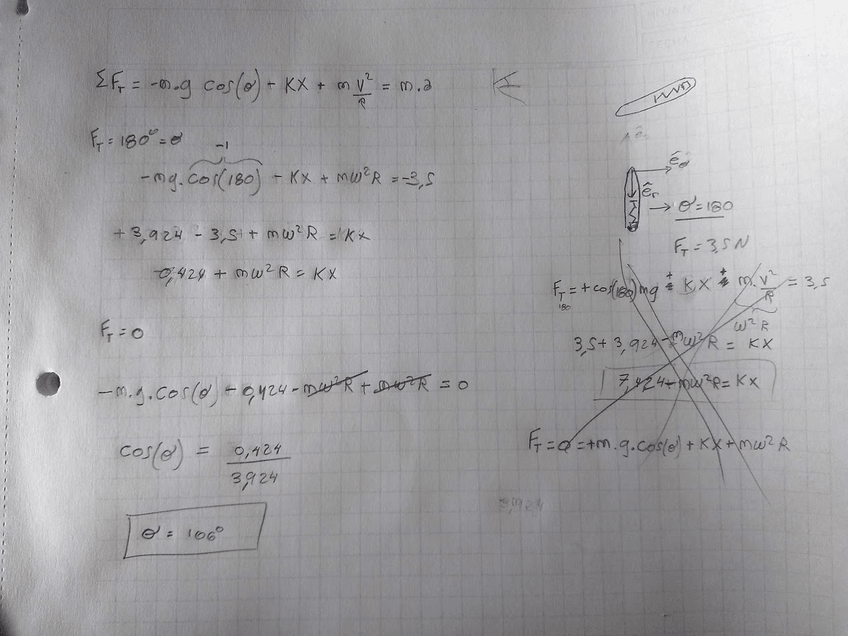 ΣF_T = -m.g cos(θ) - KX + m V²/R = m.a
F_T = 180° = θ
-1
-mg.cos(180) - KX + mω²R = -3,5
+3,924 - 3,5 + mω²R = KX
0,424 + mω²R = KX
F_T = 0
-m.g.cos(θ) - 0,424 - mω²R + mω²R = 0
cos(θ) = 0,424/3,924
θ = 106°
ê_θ
ê_r
θ = 180
F_T = 3,5N
F_T 180 = +cos(180)mg + KX + m.V²/R = 3,5
ω²R
3,5 + 3,924 - mω²R = KX
7,424 + mω²R = KX
F_T = 0 = +m.g.cos(θ) + KX + mω²R